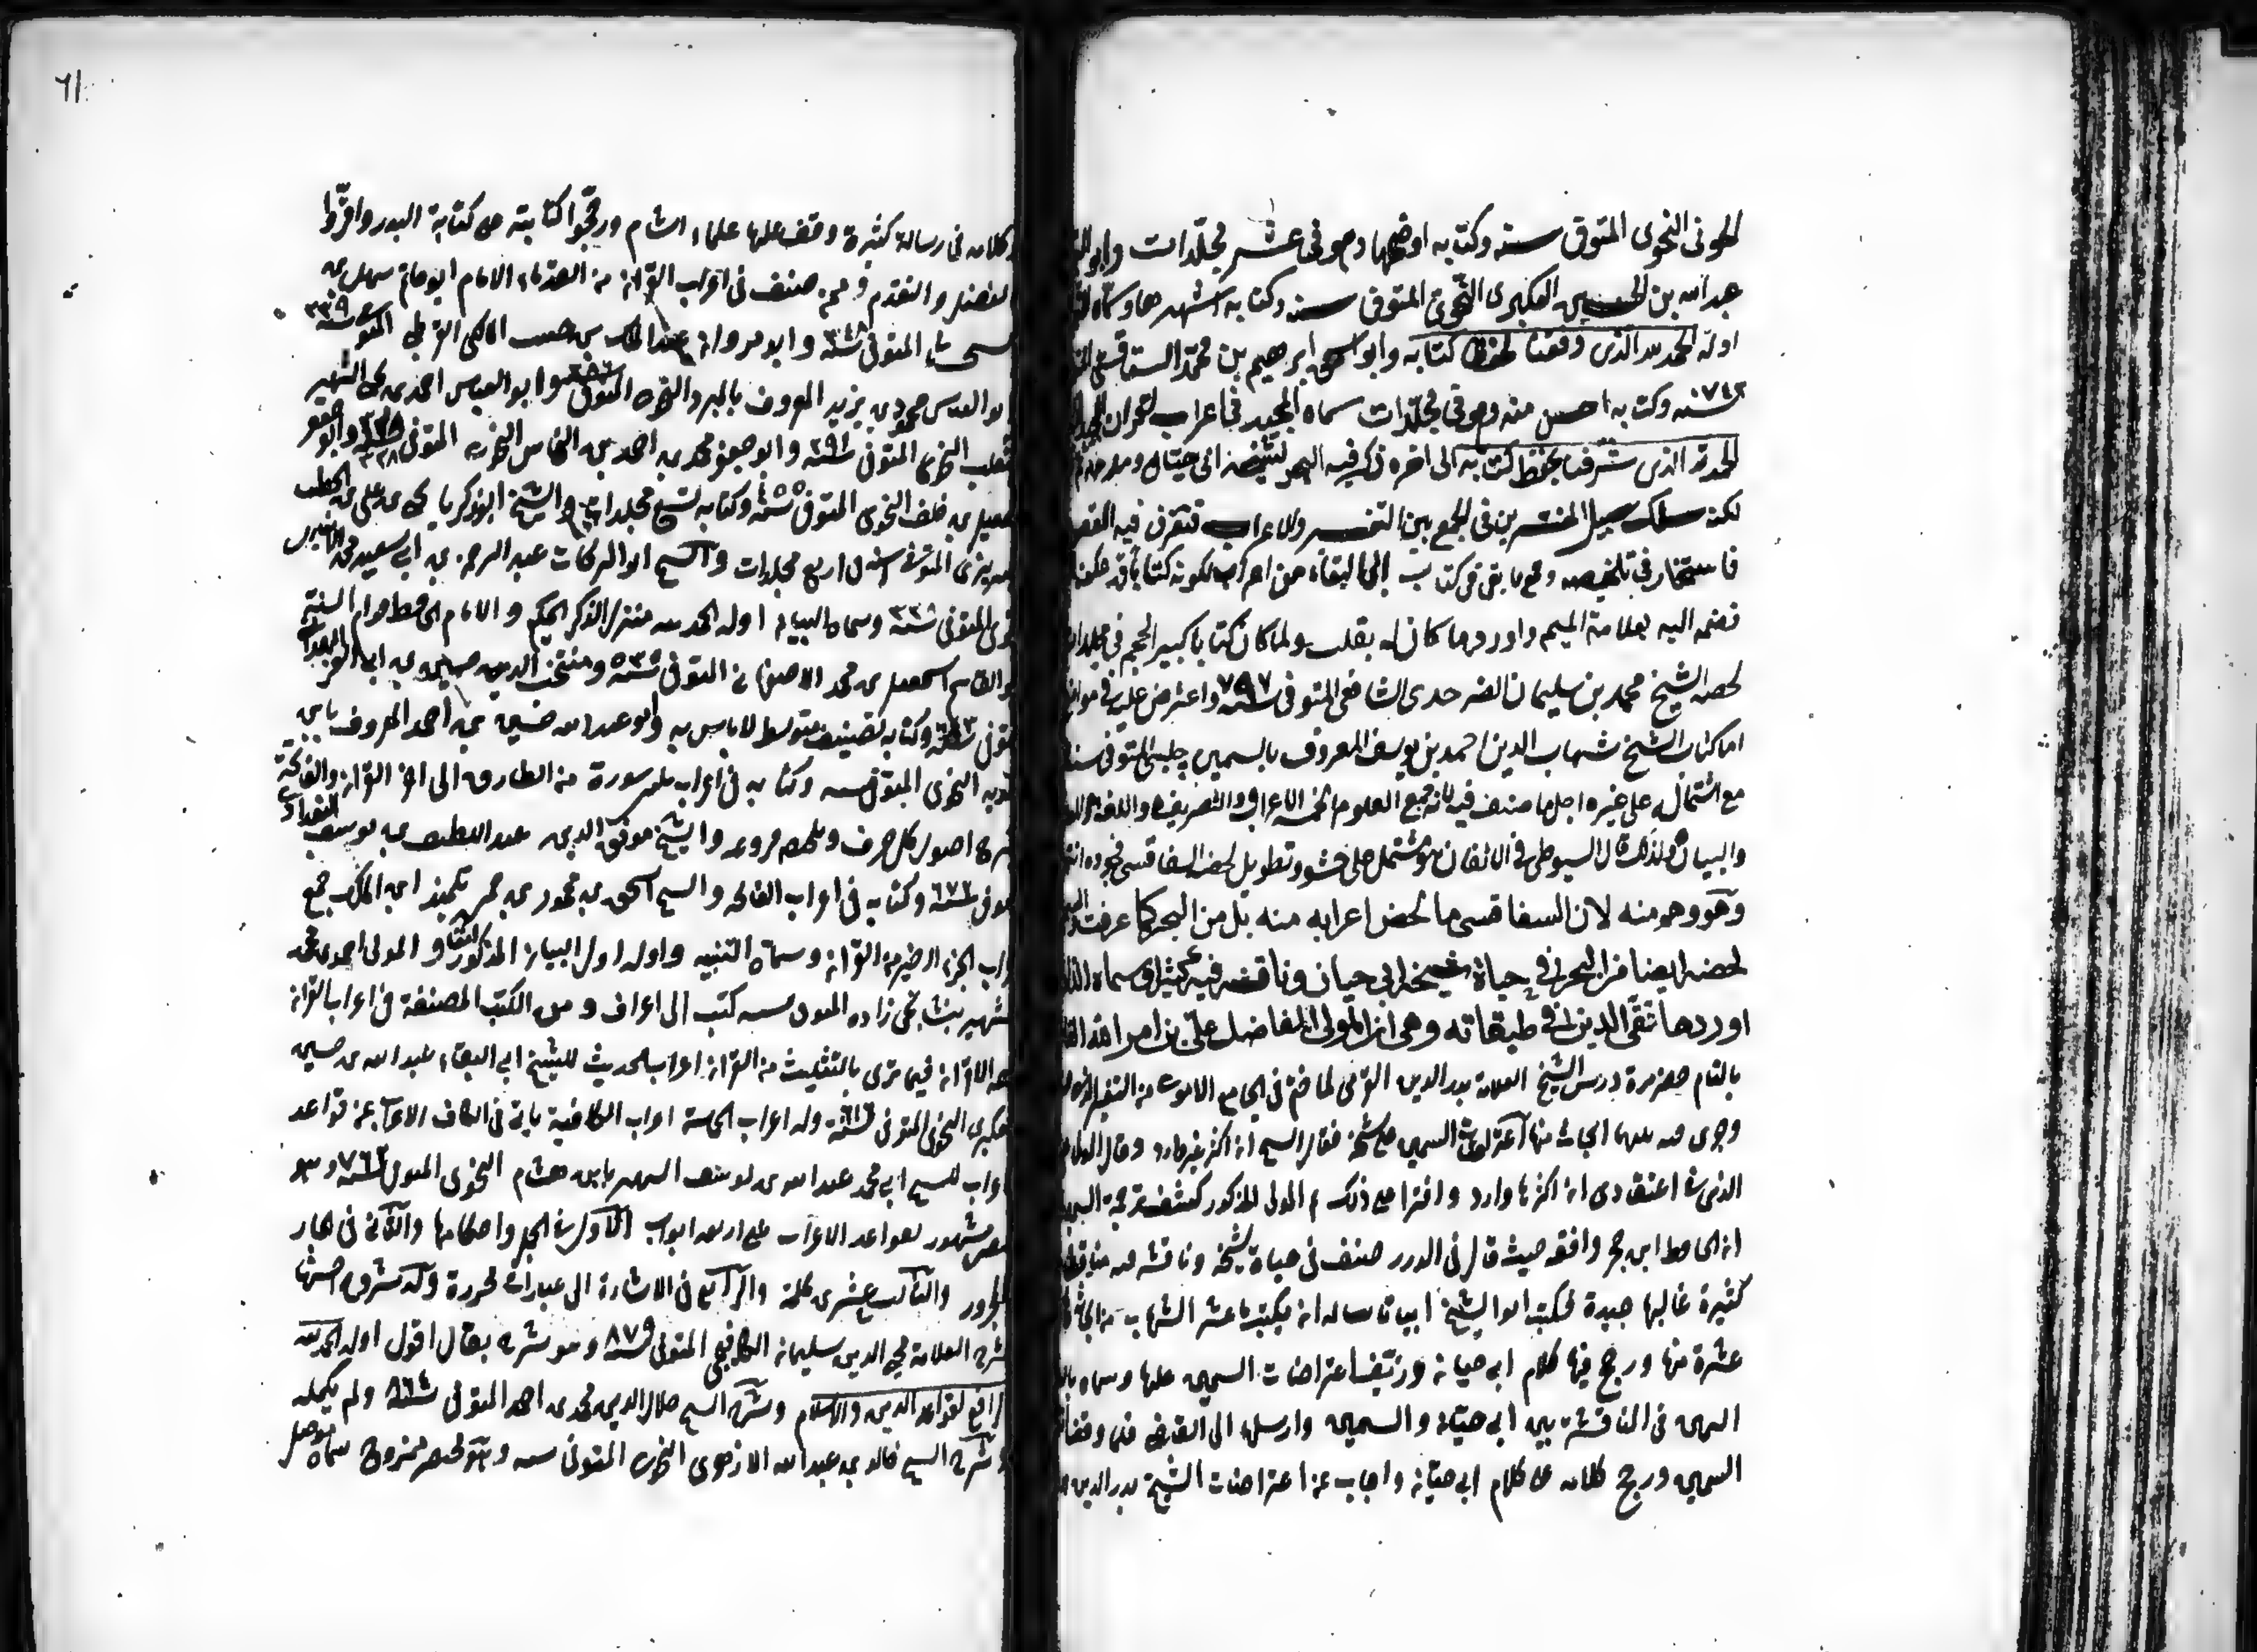 الحوفى النحوى المتوفى سنة وكتابه اوضحها وهو فى عشر مجلدات وابو البقا
عبد الله بن الحسين العكبرى النحوى المتوفى سنة وكتابه اشهرها وسماه
اوله الحمد لله الذى وفقنا لحفظ كتابه وابو اسحق ابرهيم بن محمد السفاقسى
سنة ٧٤٢ وكتابه احسن منه وهو فى مجلدات سماه المجيد فى اعراب القران المجيد
الحمد لله الذى شرفنا بحفظ كتابه الى اخره ذكر فيه البحر لشيخه ابى حيان ومدحه ثم
لكنه سلك سبيل المفسرين فى الجمع بين التفسير والاعراب فتفرق فيه المقصود
فاستخار فى تلخيصه وجمع ما بقى فى كتاب ابى البقاء من اعرابه لكونه كتابا قد عكف
فضمه اليه بعلامة الميم واورد ما كان له بقلت ولما كان كتابا كبير الحجم فى مجلدات
لخصه الشيخ محمد بن سليمان الصرخدى الشافعى المتوفى سنة ٧٩٢ واعترض عليه فى مواضع
اما كتاب الشيخ شهاب الدين احمد بن يوسف المعروف بالسمين الحلبى المتوفى سنة
مع اشتماله على غيره اجل ما صنف فيه لانه جمع العلوم الخمسة الاعراب والتصريف واللغة
والبيان ولذلك قال السيوطى فى الاتقان هو مشتمل على حشو وتطويل لخصه السفاقسى فجوده انتهى
وهو وهم منه لان السفاقسى ما لخص اعرابه منه بل من البحر كما عرفت
لخصه ايضا من البحر فى حياة شيخه ابى حيان وناقشه فيه كثيرا وسماه الدر
اوردها تقى الدين فى طبقاته وهى ان المولى الفاضل على بن امر الله
بالشام حضر مرة درس الشيخ العلامة بدر الدين الغزى لما ختم فى الجامع الاموى من التفسير الذى
وجرى فيه بينهما ابحاث منها اعتراضات السمين على شيخه فقال الشيخ ان اكثرها غير وارد وقال المولى
الذى فى اعتقادى ان اكثرها وارد واصرا على ذلك ثم المولى المذكور كشف ترجمة السمين
ان الحافظ ابن حجر وافقه حيث قال فى الدرر صنف فى حياة شيخه وناقشه فيه مناقشات
كثيرة غالبها جيدة فكتب الى الشيخ ابياتا ساله ان يكتب ما عثر الشهاب من ابحاثه
عشرة منها ورجح فيها كلام ابى حيان وزيف اعتراضات السمين عليها وسماه بالدر
الثمين فى المناقشة بين ابى حيان والسمين وارسلها الى القاضى فلما وقف
السمين ورجح كلامه على كلام ابى حيان واجاب عن اعتراضات الشيخ بدر الدين
كلامه فى رسالة كثيرة وقف عليها علماء الشام ورجحوا كتابته على كتابة البدر واقروا
بالفضل والتقدم وممن صنف فى اعراب القران من القدماء الامام ابو حاتم سهل بن
السجستانى المتوفى سنة ٢٤٨ وابو مروان عبد الملك بن حبيب المالكى القرطبى المتوفى سنة ٢٣٩
ابو العباس محمد بن يزيد المعروف بالمبرد النحوى المتوفى سنة ٢٨٦ وابو العباس احمد بن يحيى الشهير
بثعلب النحوى المتوفى سنة ٢٩١ وابو جعفر محمد بن احمد بن النحاس النحوى المتوفى سنة ٣٣٨ وابو طاهر
اسمعيل بن خلف النحوى المتوفى سنة ٤٥٥ وكتابه تسع مجلدات والشيخ ابو زكريا يحيى بن على بن الخطيب
التبريزى المتوفى سنة فى اربع مجلدات والشيخ ابو البركات عبد الرحمن بن ابى سعيد محمد الانبارى
النحوى المتوفى سنة وسماه البيان اوله الحمد لله منزل الذكر الحكيم والامام الحافظ قوام السنة
ابو القاسم اسمعيل بن محمد الاصفهانى المتوفى سنة ٥٣٥ ومنتجب الدين حسين بن ابى العز الهمدانى
المتوفى سنة ٦٤٣ وكتابه تصنيف متوسط لا باس به وابو عبد الله حسين بن احمد المعروف بابن
خالويه النحوى المتوفى سنة وكتابه فى اعراب ثلاثين سورة من الطارق الى اخر القران والفاتحة
شرح اصول كل حرف وتلخيص فروعه والشيخ موفق الدين عبد اللطيف بن يوسف البغدادى
المتوفى سنة وكتابه فى اعراب الفاتحة والشيخ اسحق بن محمود بن حمزة تلميذ ابن الملك جمع
اعراب الجزء الاخير من القران وسماه التنبيه واوله اول البيان المذكور انفا والمولى احمد بن محمد
الشهير بنشانجى زاده المتوفى سنة كتب الى الاعراف ومن الكتب المصنفة فى اعراب القران
تحفة الاقران فيما قرى بالتثليث من القران اعراب الحديث للشيخ ابى البقاء عبد الله بن حسين
العكبرى النحوى المتوفى سنة ٦١٦ وله اعراب الحماسة اعراب الكافية ياتى فى الكاف الاعراب عن قواعد
الاعراب للشيخ ابى محمد عبد الله بن يوسف الشهير بابن هشام النحوى المتوفى سنة ٧٦٢ وهو
مختصر مشهور بقواعد الاعراب على اربعة ابواب الاول فى الجمل واحكامها والثانى فى الجار
المجرور والثالث عشرين كلمة والرابع فى الاشارة الى عبارات محررة وله شروح احسنها
شرح العلامة محيى الدين سليمان الكافيجى المتوفى سنة ٨٧٩ وهو شرح بقال اقول اوله الحمد لله
الرافع لقواعد الدين والاسلام وشرح الشيخ جلال الدين محمد بن احمد المتوفى سنة ٨٦٤ ولم يكمله
وشرح الشيخ خالد بن عبد الله الازهرى النحوى المتوفى سنة وهو مختصر ممزوج سماه موصل
٦١